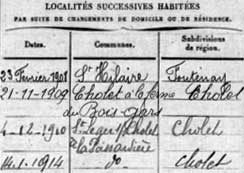 LOCALITÉS SUCCESSIVES HABITÉES
PAR SUITE DE CHANGEMENTS DE DOMICILE OU DE RÉSIDENCE.
Dates. Communes. Subdivisions de région.
23 Février 1908 St Hilaire Fontenay
21-11-1909 Cholet à la ferme Cholet
du Bois-Gars
4-12-1910 St Leger s/ Cholet Cholet
la
14-1-1914 do Cholet